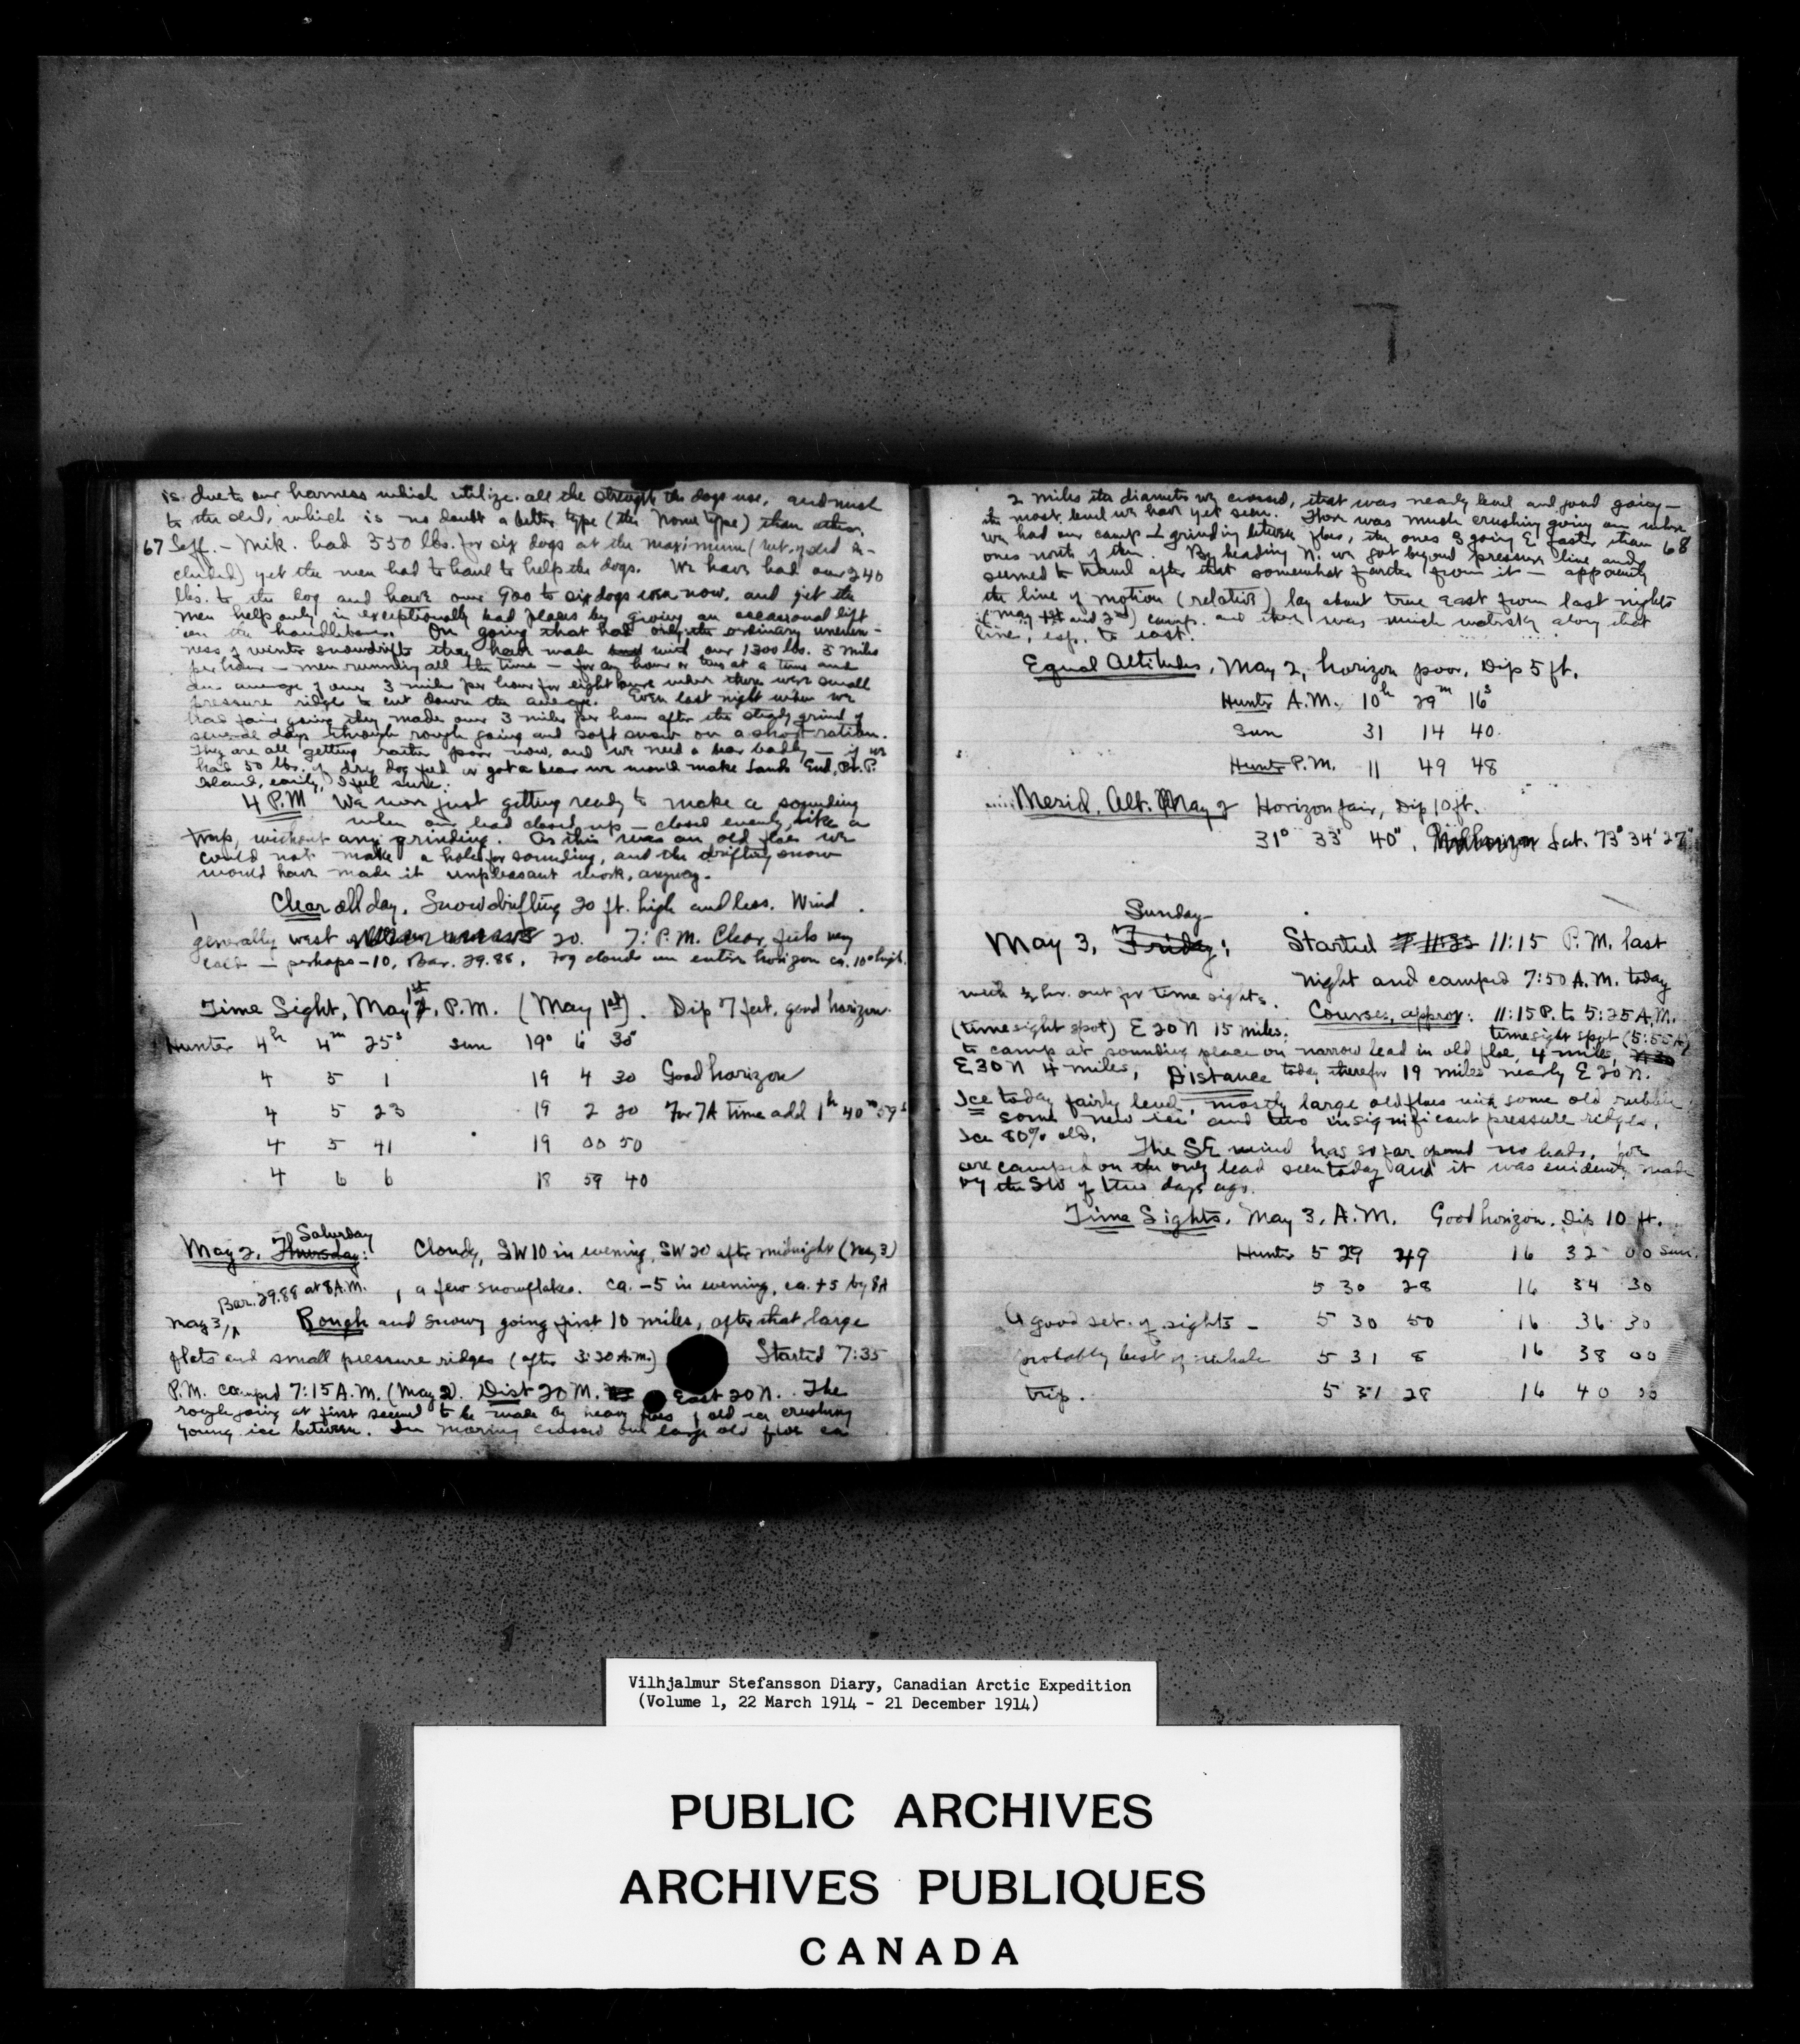 is due to our harness which utilize all the strength the dogs use, and much
to the sled, which is no doubt a better type (the Nome type) than other.
67 Leff.- Mik. had 550 lbs. for six dogs at the maximum (wt. of sled in-
cluded) yet the men had to haul to help the dogs. We have had over 240
lbs. to the dog and have over 900 to six dogs even now, and yet the
men help only in exceptionally bad places by giving an occasional lift
on the handlebars. On going that had only the ordinary uneven-
ness of winter snowdrifts they have made with our 1300 lbs. 5 miles
per hour — men running all the time — for an hour or two at a time and
an average of over 3 miles per hour for eight hours where there were small
pressure ridges to cut down the average. Even last night when we
had fair going they made over 3 miles per hour after the steady grind of
several days through rough going and soft snow on a short ration.
They are all getting rather poor now, and we need a bear badly — if we
had 50 lbs. of dry dog feed or got a bear we would make Lands End, Pt. P.
Island, easily, I feel sure.
4 P.M. We were just getting ready to make a sounding
when our lead closed up — closed evenly, like a
trap, without any grinding. As this was an old floe we
could not make a hole for sounding, and the drifting snow
would have made it unpleasant work, anyway.
Clear all day. Snow drifting 20 ft. high and less. Wind
generally west 20. 7: P.M. Clear, feels very
cold — perhaps -10, Bar. 29.88. Fog clouds on entire horizon ca. 10° high.
Time Sight, May 1st, P.M. (May 1st). Dip 7 feet, good horizon.
Hunter 4h 4m 25s sun 19° 6' 30"
4 5 1 19 4 30 Good horizon
4 5 23 19 2 20 For TA time add 1h 40m 59s
4 5 41 19 00 50
4 6 6 18 59 40
Saturday
May 2, Thursday: Cloudy, SW 10 in evening, SW 20 after midnight (May 3)
Bar. 29.88 at 8 A.M. , a few snowflakes. ca. -5 in evening, ca. +5 by 8A
May 3, Rough and snowy going first 10 miles, after that large
flats and small pressure ridges (after 3:30 A.M.) Started 7:35
P.M. camped 7:15 A.M. (May 2). Dist 20 M. East 20 N. The
rough going at first seemed to be made by heavy floes of old ice crushing
young ice between. In morning crossed one large old floe ca
2 miles its diameter we crossed, that was nearly level and good going —
the most level we have yet seen. There was much crushing going on where
we had our camp grinding between floes, the ones S going E faster than 68
ones north of them. By heading N. we got beyond pressure line and
seemed to travel after that somewhat farther from it — apparently
the line of motion (relative) lay about true east from last nights
(May 1st and 2nd) camp. and there was much watersky along that
line, esp. to east.
Equal Altitudes, May 2, horizon poor, Dip 5 ft.
Hunter A.M. 10h 29m 16s
Sun 31 14 40
Hunter P.M. 11 49 48
Merid. Alt. May 2 Horizon fair, Dip 10 ft.
31° 33' 40", Lat. 73° 34' 27"
Sunday
May 3, Friday: Started 11:15 P.M. last
night and camped 7:50 A.M. today
with ½ hr. out for time sights. Courses, approx: 11:15 P. to 5:25 A.M.
(time sight spot) E 20 N 15 miles. time sight spot (5:55 A)
to camp at sounding place on narrow lead in old floe, 4 miles,
E 30 N 4 miles, Distance today therefor 19 miles nearly E 20 N.
Ice today fairly level, mostly large old floes with some old rubble
some new ice and two insignificant pressure ridges.
Ice 80% old. The SE wind has so far opened no leads, for
are camped on the only lead seen today and it was evidently made
by the SW of two days ago.
Time Sights, May 3, A.M. Good horizon. Dip 10 ft.
Hunter 5 29 49 16 32 00 Sun.
5 30 28 16 34 30
A good set of sights — 5 30 50 16 36 30
probably best of whole 5 31 8 16 38 00
trip. 5 31 28 16 40 00
Vilhjalmur Stefansson Diary, Canadian Arctic Expedition
(Volume 1, 22 March 1914 - 21 December 1914)
PUBLIC ARCHIVES
ARCHIVES PUBLIQUES
CANADA